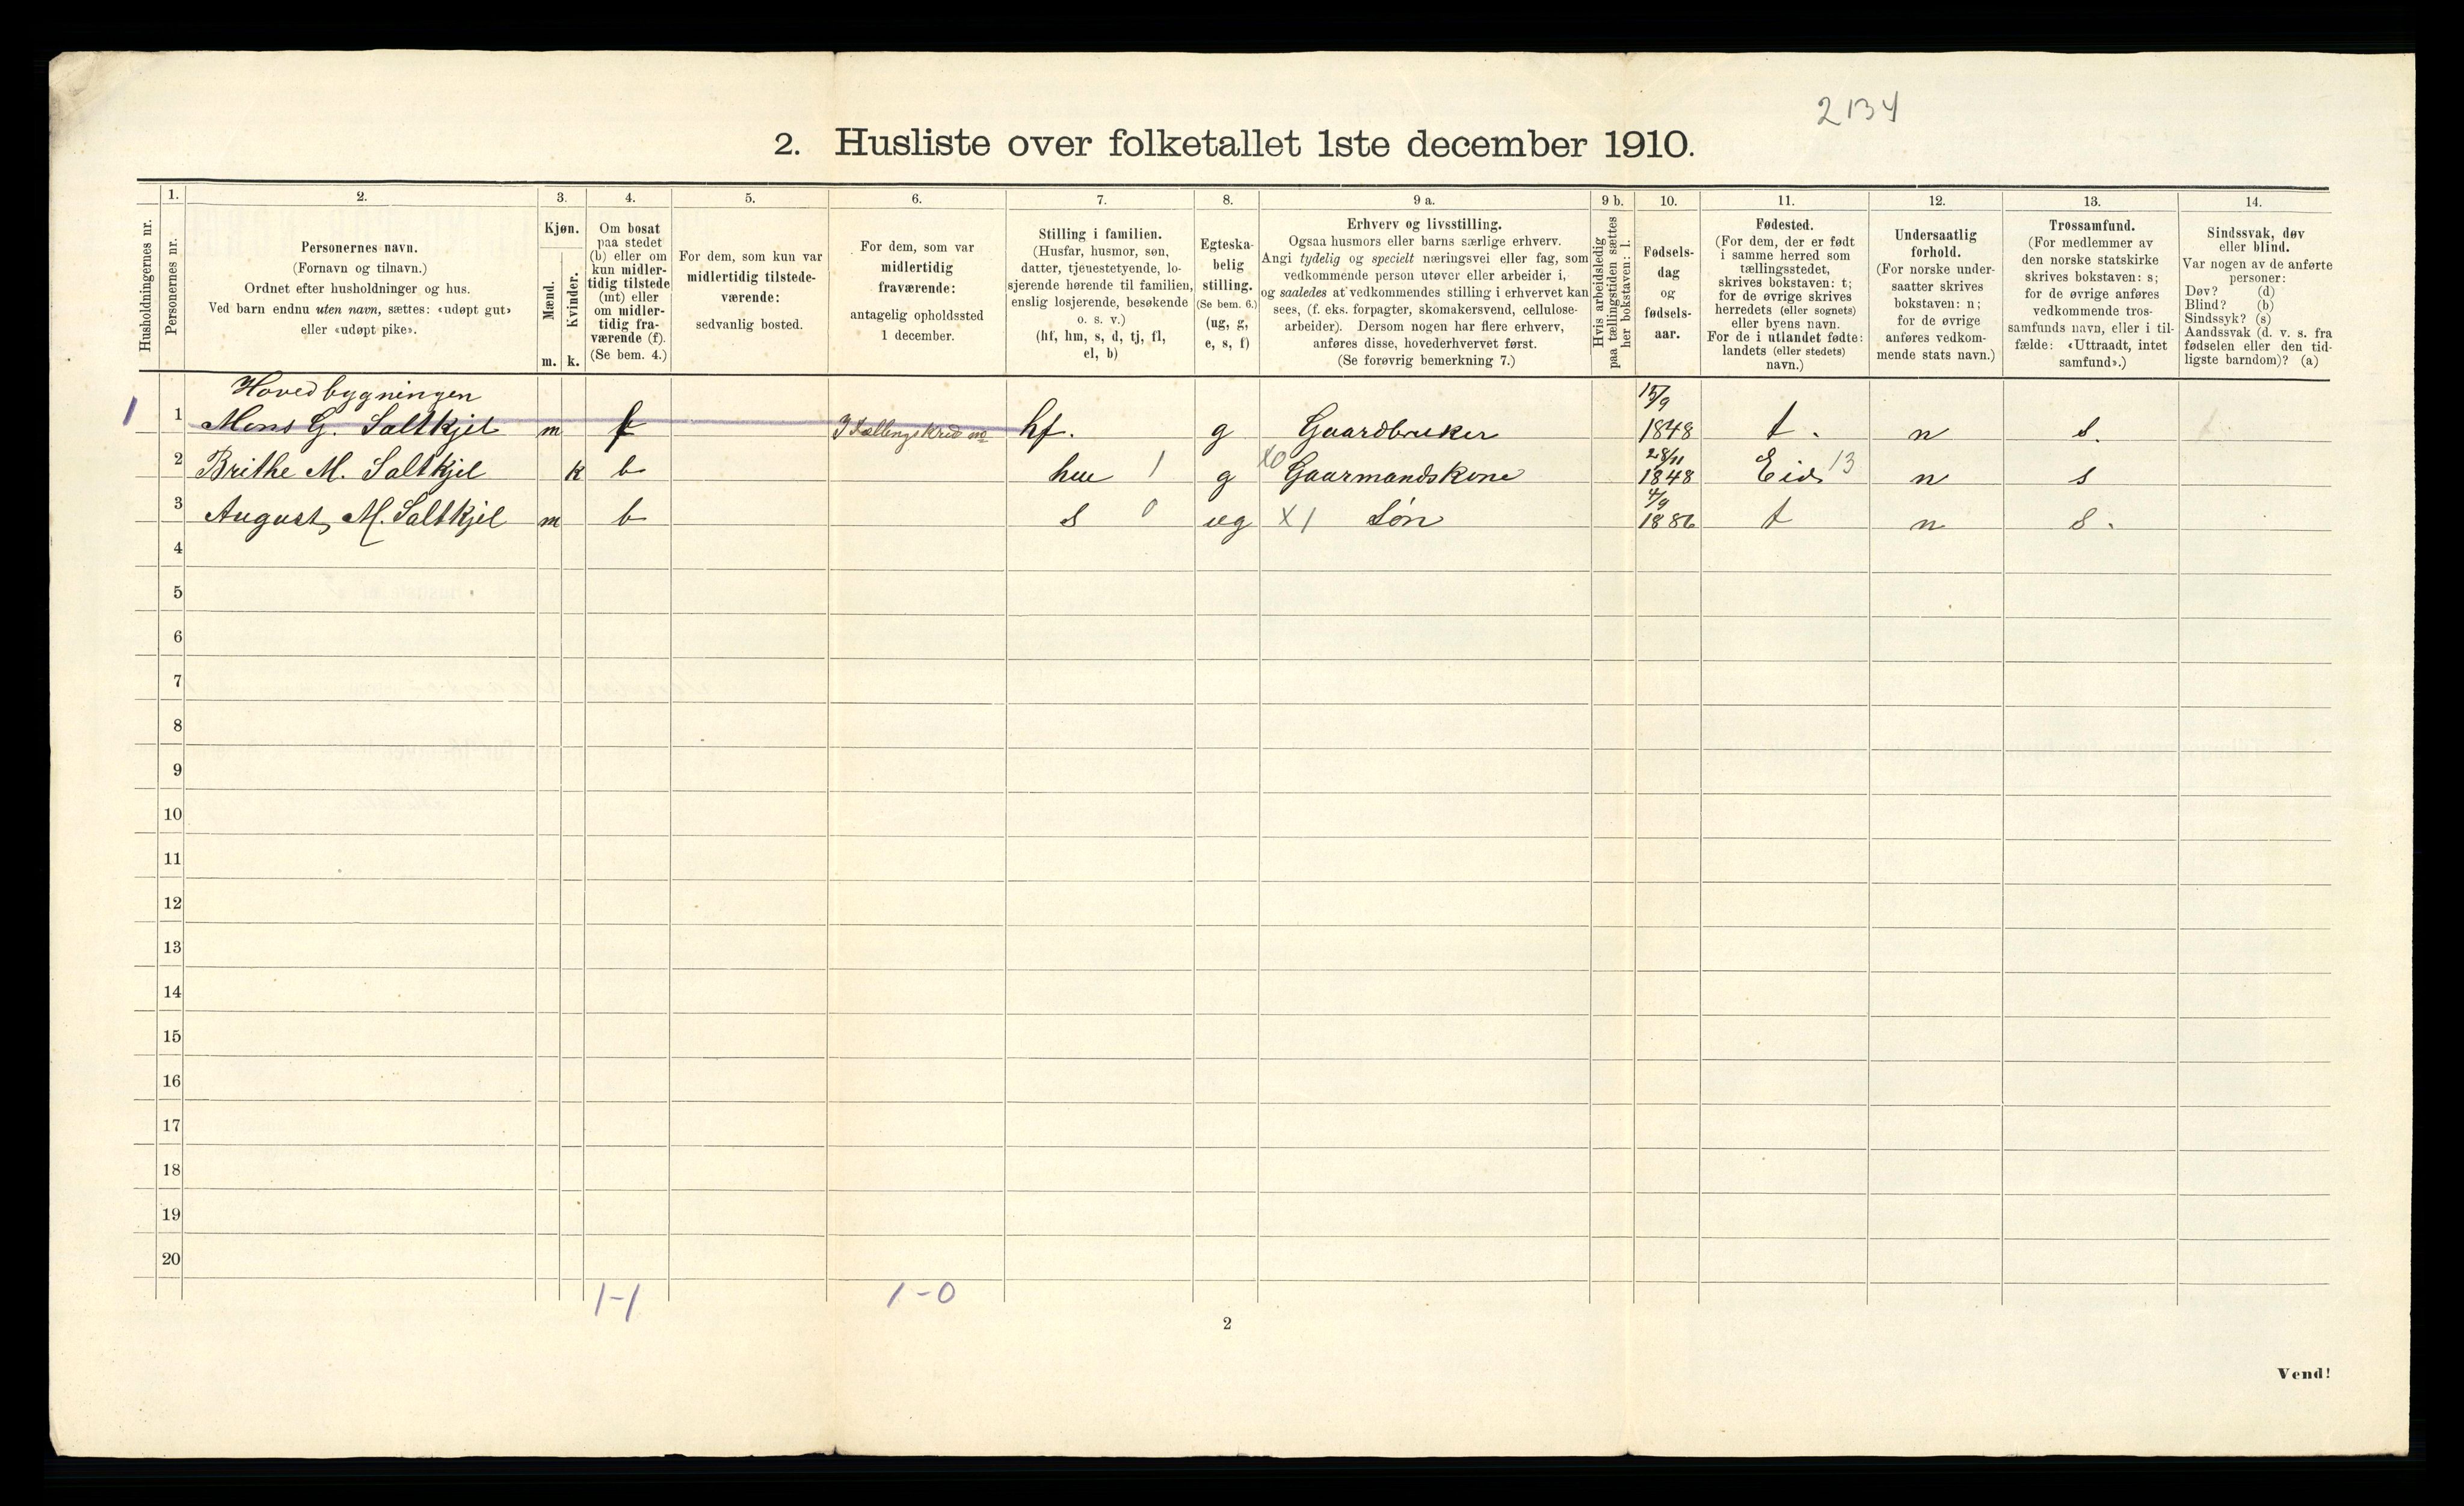 2134
2. Husliste over folketallet 1ste december 1910.
Husholdningernes nr.
1.
Personernes nr.
2.
Personernes navn.
(Fornavn og tilnavn.)
Ordnet efter husholdninger og hus.
Ved barn endnu uten navn, sættes: «udøpt gut»
eller «udøpt pike».
3.
Kjøn.
Mænd.
Kvinder.
m. k.
4.
Om bosat
paa stedet
(b) eller om
kun midler-
tidig tilstede
(mt) eller
om midler-
tidig fra-
værende (f).
(Se bem. 4.)
5.
For dem, som kun var
midlertidig tilstede-
værende:
sedvanlig bosted.
6.
For dem, som var
midlertidig
fraværende:
antagelig opholdssted
1 december.
7.
Stilling i familien.
(Husfar, husmor, søn,
datter, tjenestetyende, lo-
sjerende hørende til familien,
enslig losjerende, besøkende
o. s. v.)
(hf, hm, s, d, tj, fl,
el, b)
8.
Egteska-
belig
stilling.
(Se bem. 6.)
(ug, g,
e, s, f)
9 a.
Erhverv og livsstilling.
Ogsaa husmors eller barns særlige erhverv.
Angi tydelig og specielt næringsvei eller fag, som
vedkommende person utøver eller arbeider i,
og saaledes at vedkommendes stilling i erhvervet kan
sees, (f. eks. forpagter, skomakersvend, cellulose-
arbeider). Dersom nogen har flere erhverv,
anføres disse, hovederhvervet først.
(Se forøvrig bemerkning 7.)
9 b.
Hvis arbeidsledig
paa tællingstiden sættes
her bokstaven: l.
10.
Fødsels-
dag
og
fødsels-
aar.
11.
Fødested.
(For dem, der er født
i samme herred som
tællingsstedet,
skrives bokstaven: t;
for de øvrige skrives
herredets (eller sognets)
eller byens navn.
For de i utlandet fødte:
landets (eller stedets)
navn.)
12.
Undersaatlig
forhold.
(For norske under-
saatter skrives
bokstaven: n;
for de øvrige
anføres vedkom-
mende stats navn.)
13.
Trossamfund.
(For medlemmer av
den norske statskirke
skrives bokstaven: s;
for de øvrige anføres
vedkommende tros-
samfunds navn, eller i til-
fælde: «Uttraadt, intet
samfund».)
14.
Sindssvak, døv
eller blind.
Var nogen av de anførte
personer:
Døv? (d)
Blind? (b)
Sindssyk? (s)
Aandssvak (d. v. s. fra
fødselen eller den tid-
ligste barndom)? (a)
Hovedbygningen
1 1 Mons G. Saltkjel m f hf. g Gaardbruker 15/9 1848 t. n s.
2 Brithe M. Saltkjel k b 1 g X0 Gaarmandskone 28/11 1848 Eid 13 n s
3 August M. Saltkjel m b s 0 ug X1 Søn 4/9 1886 t n s.
4
5
6
7
8
9
10
11
12
13
14
15
16
17
18
19
20
1-1 1-0
2
Vend!